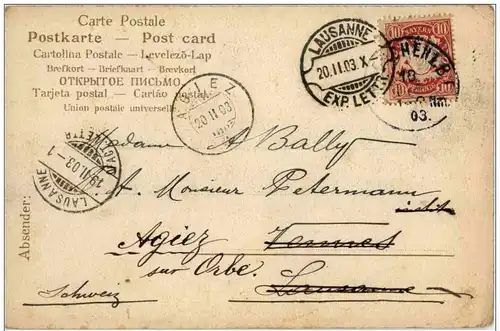 Carte Postale
Postkarte — Post card
Cartolina Postale — Levelező-Lap
Brefkort — Briefkaart — Brevkort
ОТКРЫТОЕ ПИСЬМО
Tarjeta postal — Cartão postal
Union postale universelle
LAUSANNE
20.II.03.X
EXP. LETTR.
BAYERN
10 10
03.
AGIEZ
20 II 03
LAUSANNE
19.II.03 - 1
Madame A Bally
A. Monsieur Petermann
instit
Agiez Vennes
sur Orbe. Lausanne
Schweiz
Absender: